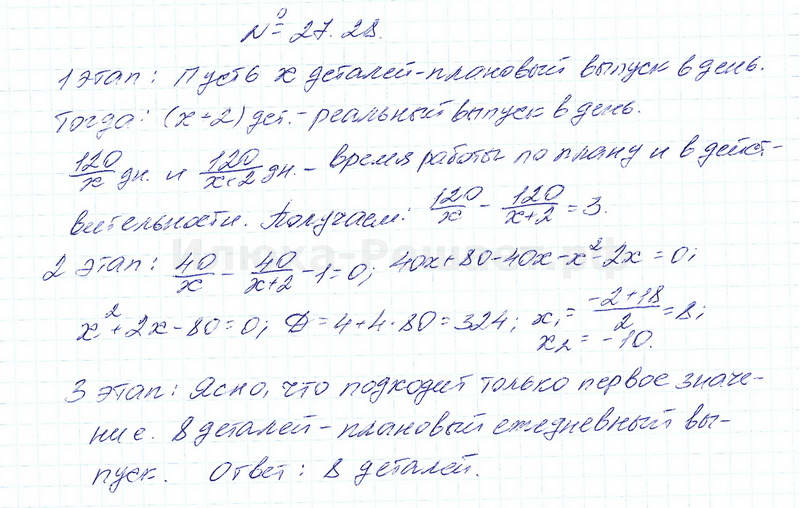 № 27.28.
1 этап: Пусть x деталей - плановый выпуск в день.
Тогда: (x+2) дет. - реальный выпуск в день.
120/x дн. и 120/x+2 дн. - время работы по плану и в дейст-
вительности. Получаем: 120/x - 120/x+2 = 3.
2 этап: 40/x - 40/x+2 - 1 = 0; 40x+80-40x-x²-2x=0;
x²+2x-80=0; D=4+4·80=324; x₁= -2+18/2 = 8;
x₂ = -10.
3 этап: Ясно, что подходит только первое значе-
ние. 8 деталей - плановый ежедневный вы-
пуск. Ответ: 8 деталей.